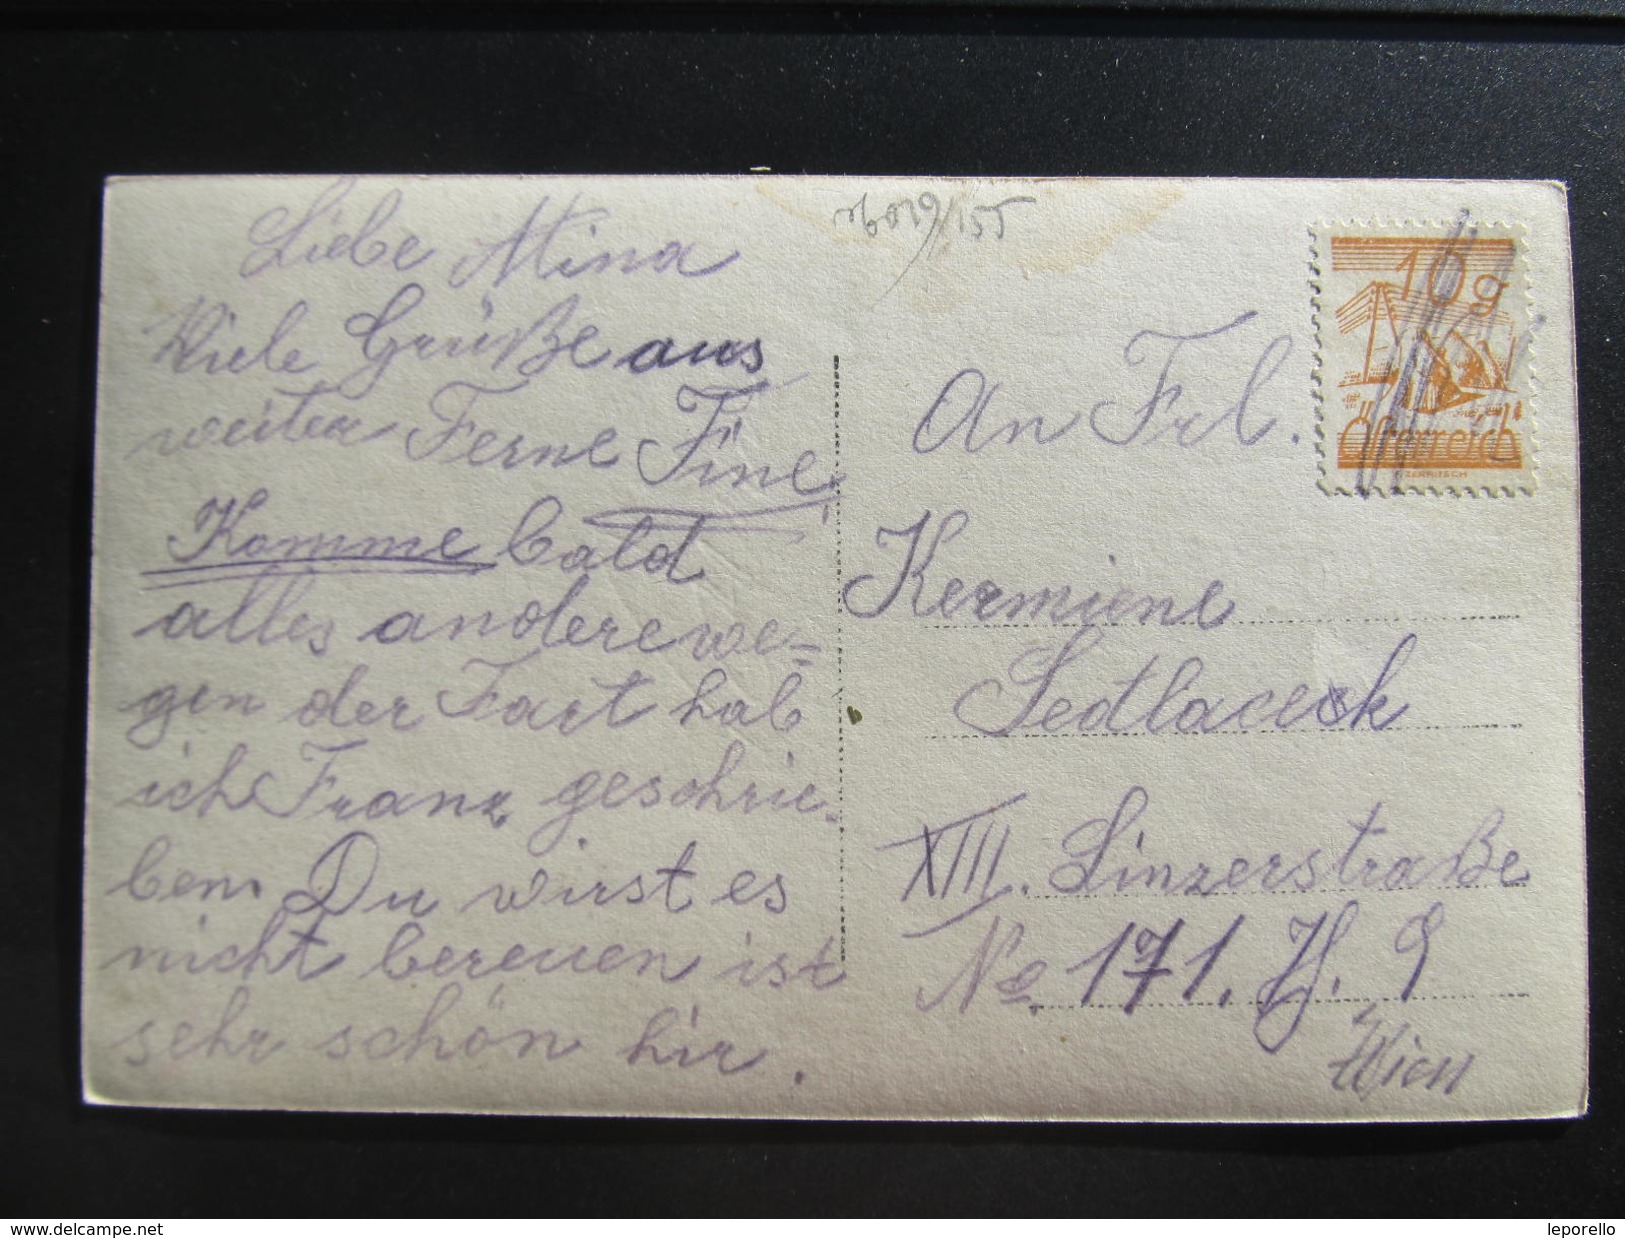 Liebe Mina
Viele Grüße aus
weiter Ferne Fine
Komme bald
alles andere we=
gen der Fart hab
ich Franz geschrie-
ben. Du wirst es
nicht bereuen ist
sehr schön hir.
6019/155
An Frl.
Hermiene
Sedlaceck
XIII. Linzerstraße
No 171. H. 9
Wien
10g
Österreich
delcampe.net
leporello